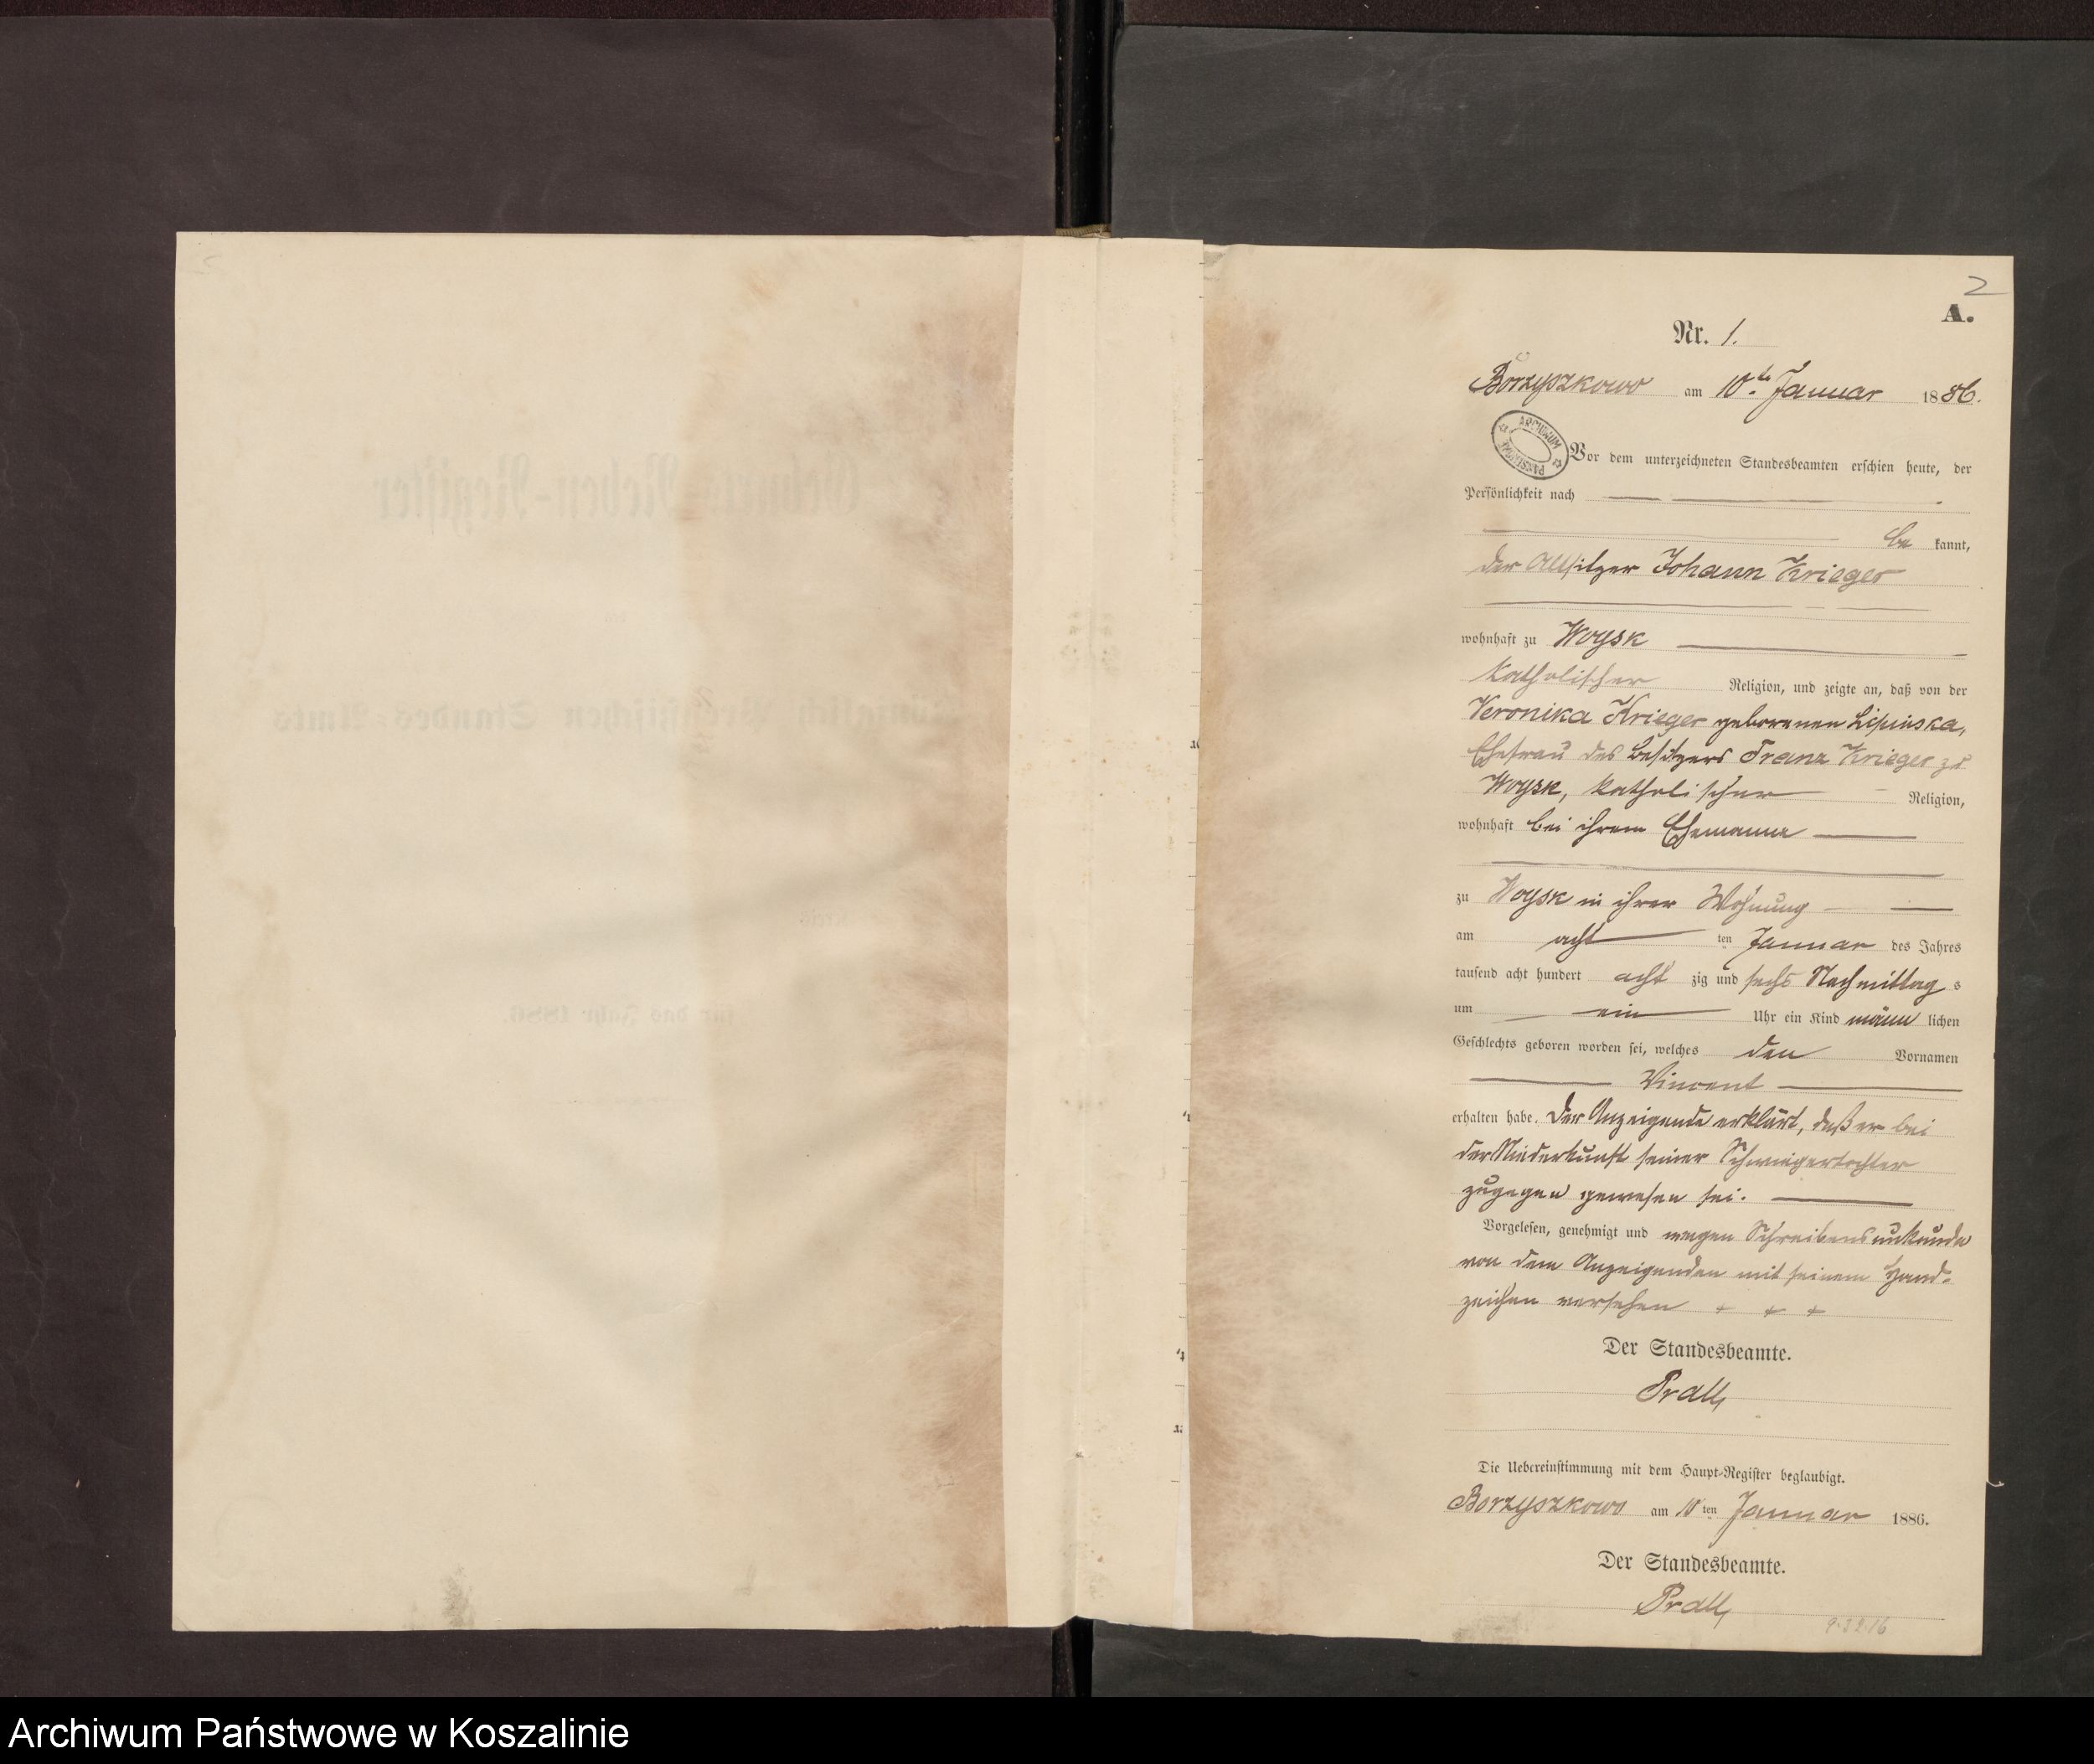 2
A.
Nr. 1.
Borzyszkowo am 10te Januar 1886.
ARCHIWUM PAŃSTWOWE
Vor dem unterzeichneten Standesbeamten erschien heute, der
Persönlichkeit nach
be kannt,
der Altsitzer Johann Krieger
wohnhaft zu Woysk
katholischer Religion, und zeigte an, daß von der
Veronika Krieger geborenen Lipinska,
Ehefrau des Besitzers Franz Krieger zu
Woysk, katholischer Religion,
wohnhaft bei ihrem Ehemanne
zu Woysk in ihrer Wohnung
am acht ten Januar des Jahres
tausend acht hundert acht zig und sechs Nachmittag s
um ein Uhr ein Kind männ lichen
Geschlechts geboren worden sei, welches den Vornamen
Vincent
erhalten habe. Der Anzeigende erklärt, daß er bei
der Niederkunft seiner Schwiegertochter
zugegen gewesen sei.
Vorgelesen, genehmigt und wegen Schreibensunkunde
von dem Anzeigenden mit seinem Hand-
zeichen versehen + + +
Der Standesbeamte.
Prall
Die Uebereinstimmung mit dem Haupt-Register beglaubigt.
Borzyszkowo am 10 ten Januar 1886.
Der Standesbeamte.
Prall
Archiwum Państwowe w Koszalinie